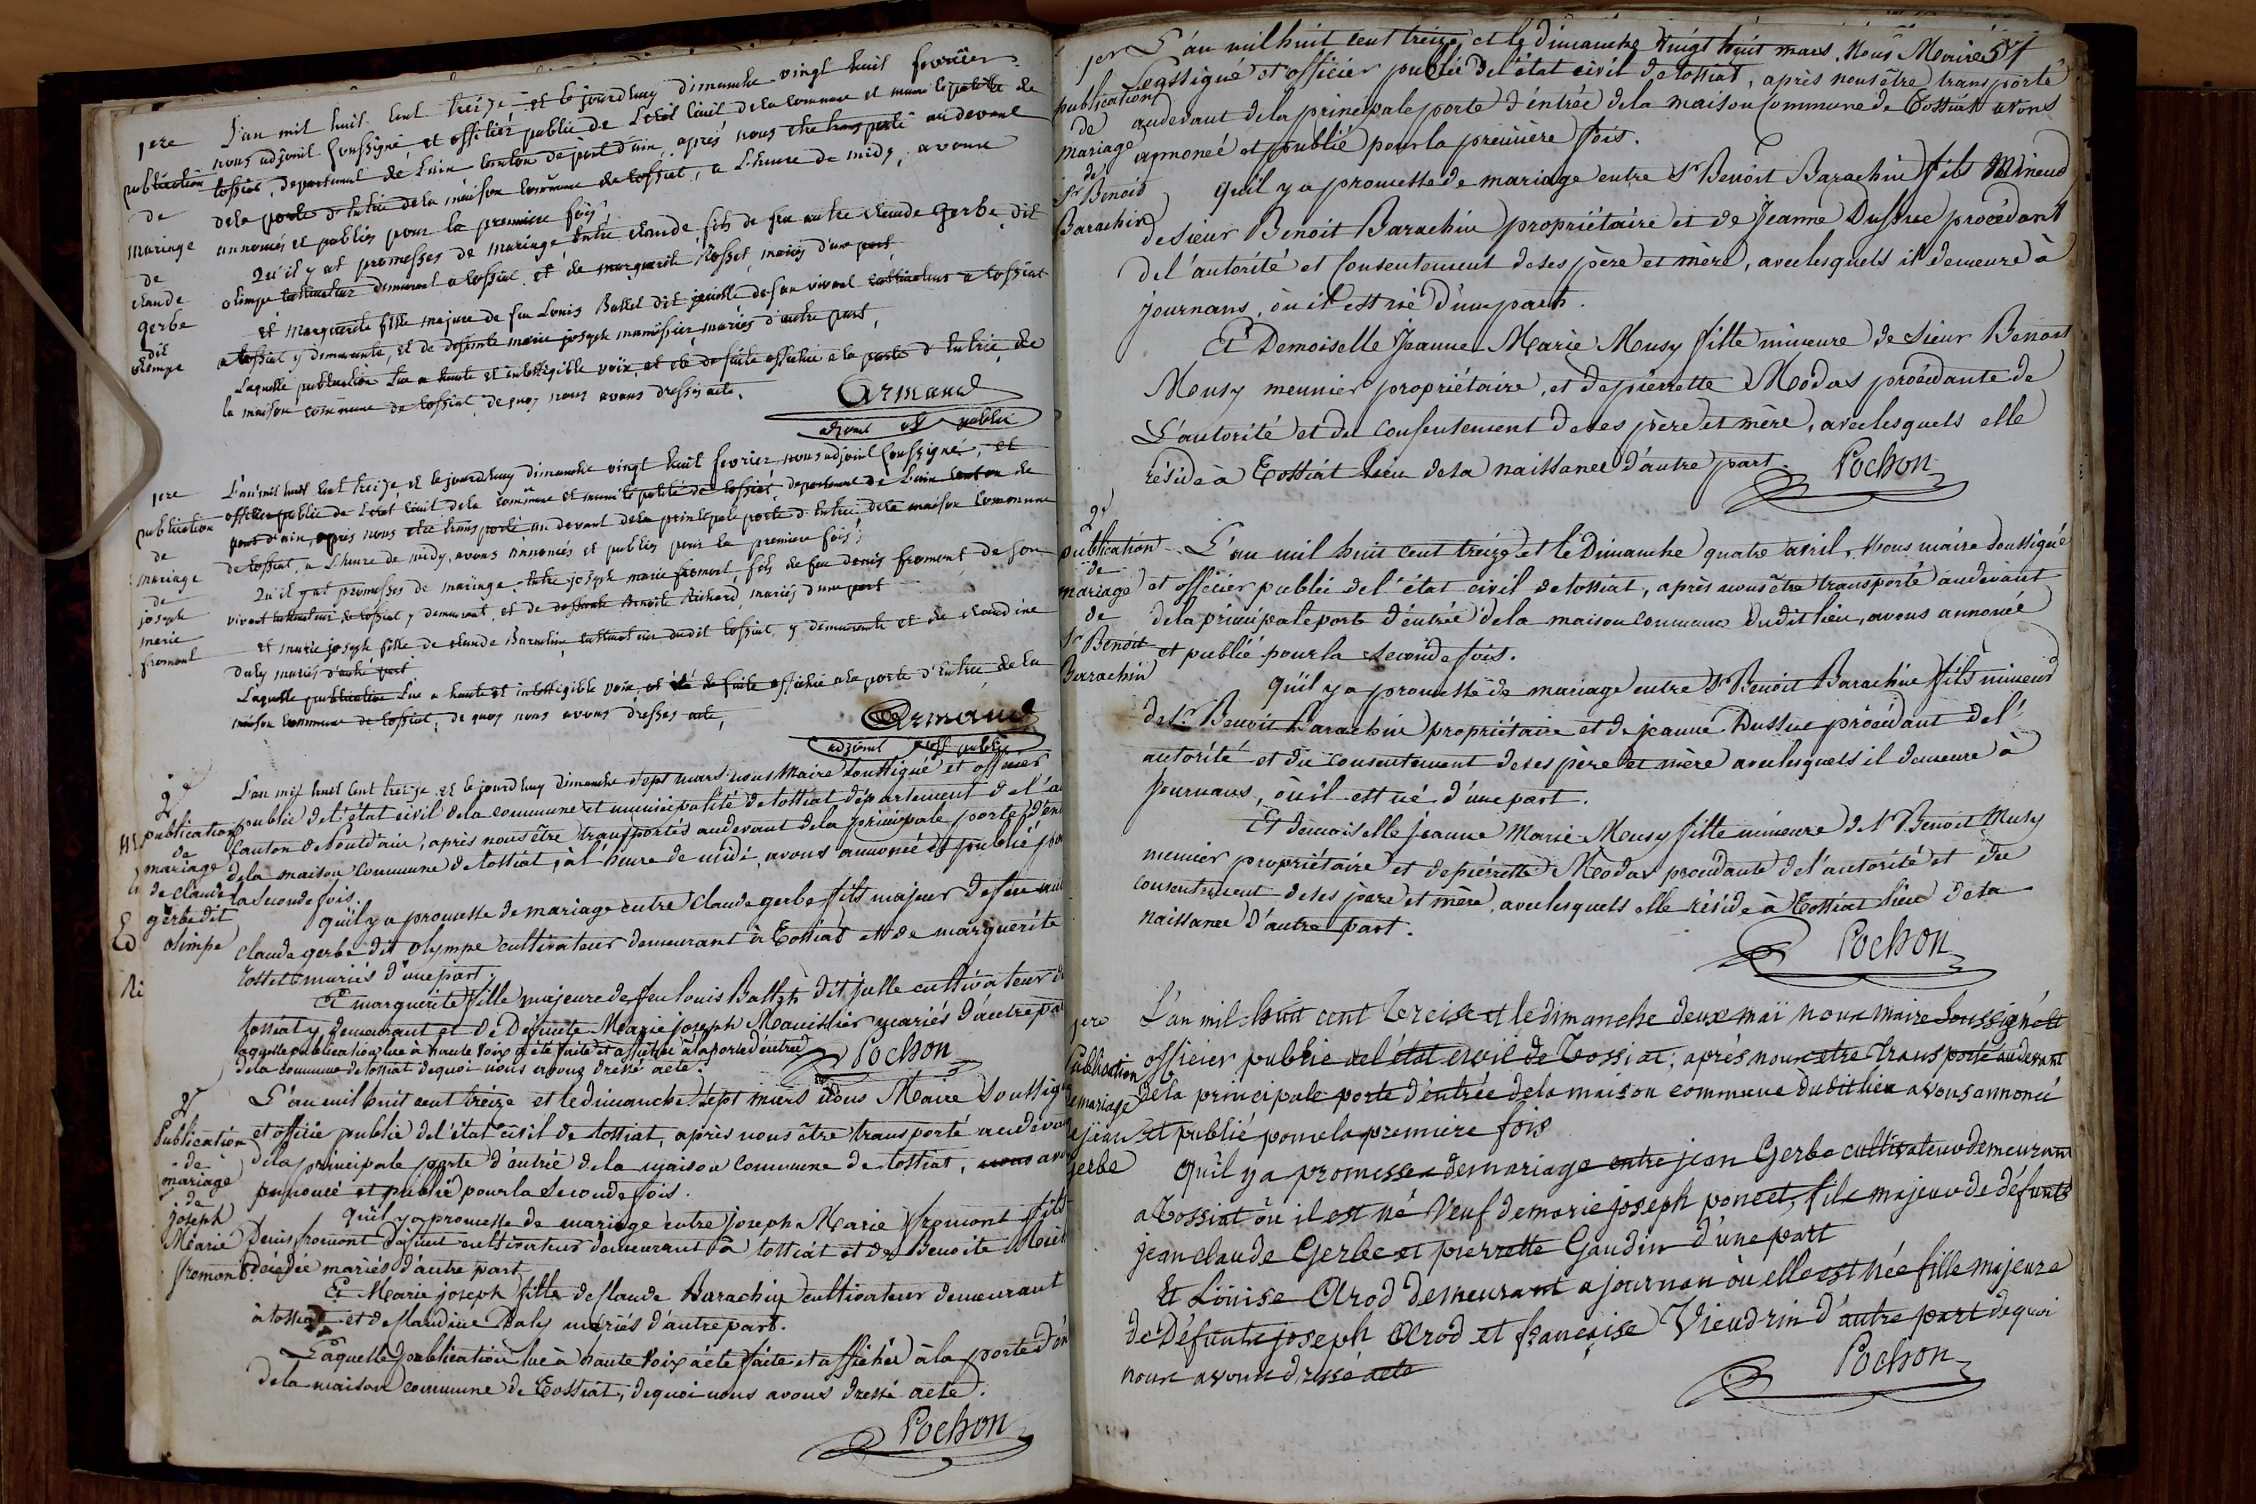 1ere
publication
de
mariage
de
claude
gerbe
dit
olempe
L'an mil huit cent treize et le jourdhuy dimanche vingt huit fevrier
nous adjoint soussigné, et officier public de l'etat civil dela commune et municipalité de
tossiat, departement de l'ain canton de pont d'ain, aprés nous etre transporté au devant
dela porte d'entrée dela maison commune de tossiat, a l'heure de midy, avons
annoncés et publiés pour la premiere fois,
Qu'il y at promesses de mariage entre claude fils de feu autre claude gerbe dit
olempe cultivateur demeurant a tossiat et de marguerite Rosset, mariés d'une part
et marguerite fille majeure de feu Louis Ballet dit julle de son vivant cultivateur a tossiat
a tossiat y demeurante, et de defunte marie joseph manissier mariés d'autre part,
Laquelle publication lue a haute et intelligible voix, et été de suite affichée a la porte d'entrée de
la maison commune de tossiat, de quoy nous avons dressés acte.
Armand
adjoint off public
1ere
publication
de
mariage
de
joseph
marie
fromont
L'an mil huit cent treize, et le jourdhuy dimanche vingt huit fevrier nous adjoint soussigné, et
officier public de l'etat civil dela commune et municipalité de tossiat, departement de l'ain canton de
pont d'ain, aprés nous etre transporté au devant dela principale porte d'entrée dela maison commune
de tossiat, a l'heure de midy, avons annoncés et publiés pour la premiere fois,
Qu'il y at promesses de mariage entre joseph marie fromont, fils de feu denis fromont de son
vivant cultivateur de tossiat y demeurant, et de deffunte Benoite Richard, mariés d'une part
et marie joseph fille de claude Barachin, cultivateur dudit tossiat, y demeurante et de claudine
Daly mariés d'autre part
Laquelle publication lue a haute et intelligible voix, et été de suite affichée a la porte d'entrée de la
maison commune de tossiat, de quoy nous avons dressés acte,
Armand
adjoint off public
2e
publication
de
mariage
de claude
gerbe dit
olimpe
L'an mil huit cent treize et le jourdhuy dimanche sept mars nous Maire soussigné et officier
public de l'état civil dela commune et municipalité de tossiat département de l'a
canton de Pont d'ain, après nous être transportés audevant dela principale porte d'en
dela maison commune de tossiat, à l'heure de midi avons annoncé et publié po
la seconde fois.
qu'il y a promesse de mariage entre claude gerbe fils majeur de feu
claude gerbe dit olympe cultivateur demeurant à Tossiat et de marguerite
rosset mariés d'une part.
Et marguerite fille majeure de feu louis Ballet dit julle cultivateur d
tossiat y demeurant et de Défunte Marie joseph Manissier mariés d'autre pa
laquelle publication lue à haute voix a été faite et affichée à la porte d'entrée
dela commune de tossiat dequoi nous avons dressé acte.
Pochon
2e
Publication
de
mariage
de
joseph
Marie
fromont
L'an mil huit cent treize et le dimanche sept mars nous Maire soussig
et officier public de l'état civil de tossiat, après nous être transporté audeva
dela principale porte d'entrée de la maison commune de tossiat, avo
annoncé et publié pour la seconde fois.
qu'il y a promesse de mariage entre joseph Marie fromont fils
Denis fromont Défunt cultivateur demeurant à tossiat et de Benoite
décédée mariés d'autre part
Et Marie joseph fille de claude Barachin cultivateur demeurant
à tossiat et de claudine Daly mariés d'autre part.
Laquelle publication lue à haute voix a été faite et affichée à la porte d'en
dela maison commune de Tossiat, dequoi nous avons dressé acte.
Pochon
57
1er
publication
de
mariage
de
Sr Benoit
Barachin
L'an mil huit cent treize et le dimanche vingt huit mars. Nous Maire
soussigné et officier public de l'état civil de tossiat, après nous être transporté
audevant dela principale porte d'entrée dela maison commune de Tossiat avons
annoncé et publié pour la première fois.
qu'il y a promesse de mariage entre Sr Benoit Barachin fils Mineur
de sieur Benoit Barachin propriétaire et de Jeanne Dussuc procédant
de l'autorité et consentement de ses père et mère, avec lesquels il demeure à
journans, où il est né d'une part.
Et Demoiselle Jeanne Marie Musy fille mineure de sieur Benoit
Musy meunier propriétaire, et de pierrette Modas procédante de
L'autorité et du consentement de ses père et mère, avec lesquels elle
réside à Tossiat lieu de sa naissance d'autre part
Pochon
2e
publication
de
mariage
de
Sr Benoit
Barachin
L'an mil huit cent treize et le Dimanche quatre avril, Nous maire soussigné
et officier public de l'état civil de tossiat, après nous être transporté audevant
dela principale porte d'entrée dela maison commune dudit lieu, avons annoncé
et publié pour la seconde fois.
qu'il y a promesse de mariage entre Sr Benoit Barachin fils mineur
de Sr Benoit Barachin propriétaire et de jeanne Dussuc procédant de l'
autorité et du consentement de ses père et mère avec lesquels il demeure à
Journans, où il est né d'une part.
Et demoiselle jeanne Marie Musy fille mineure de Sr Benoit Musy
meunier propriétaire et de pierrette Modas procédante de l'autorité et du
consentement de ses père et mère, avec lesquels elle réside à Tossiat lieu de sa
naissance d'autre part.
Pochon
1ere
Publication
de mariage
de jean
gerbe
L'an mil huit cent treise et le dimanche deux mai nous maire soussigné et
officier public de l'état civil de Tossiat; après nous être transporté audevant
dela principale porte d'entrée dela maison commune dudit lieu avons annoncé
et publié pour la premiere fois
qu'il y a promesse de mariage entre jean Gerbe cultivateur demeurant
a Tossiat où il est né Veuf de marie joseph poncet, fils majeur de défunts
jean claude Gerbe et pierrette Gaudin d'une part
Et Louise Orod demeurant a journan où elle est née fille majeure
de Défunts joseph Orod et françoise Vieudrin d'autre part dequoi
nous avons dressé acte
Pochon